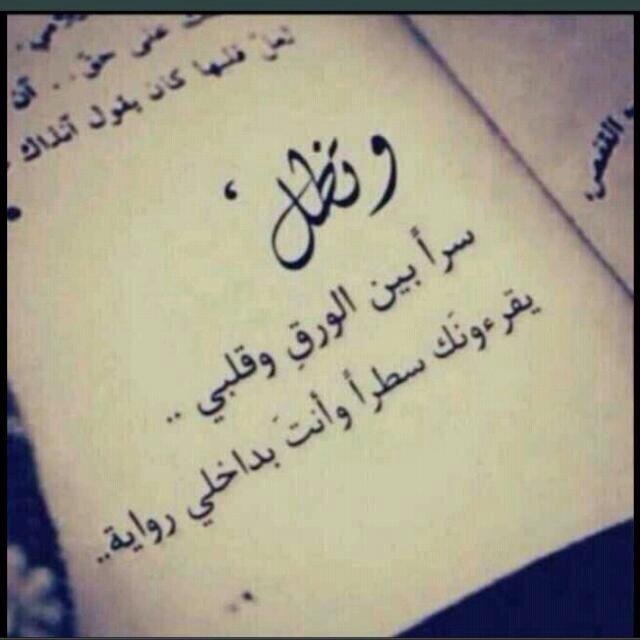 على حق .. أن
لعل قلبها كان يقول آنذاك
وتظل ،
سراً بين الورقِ وقلبي ..
يقرءونَك سطراً وأنتَ بداخلي رواية..